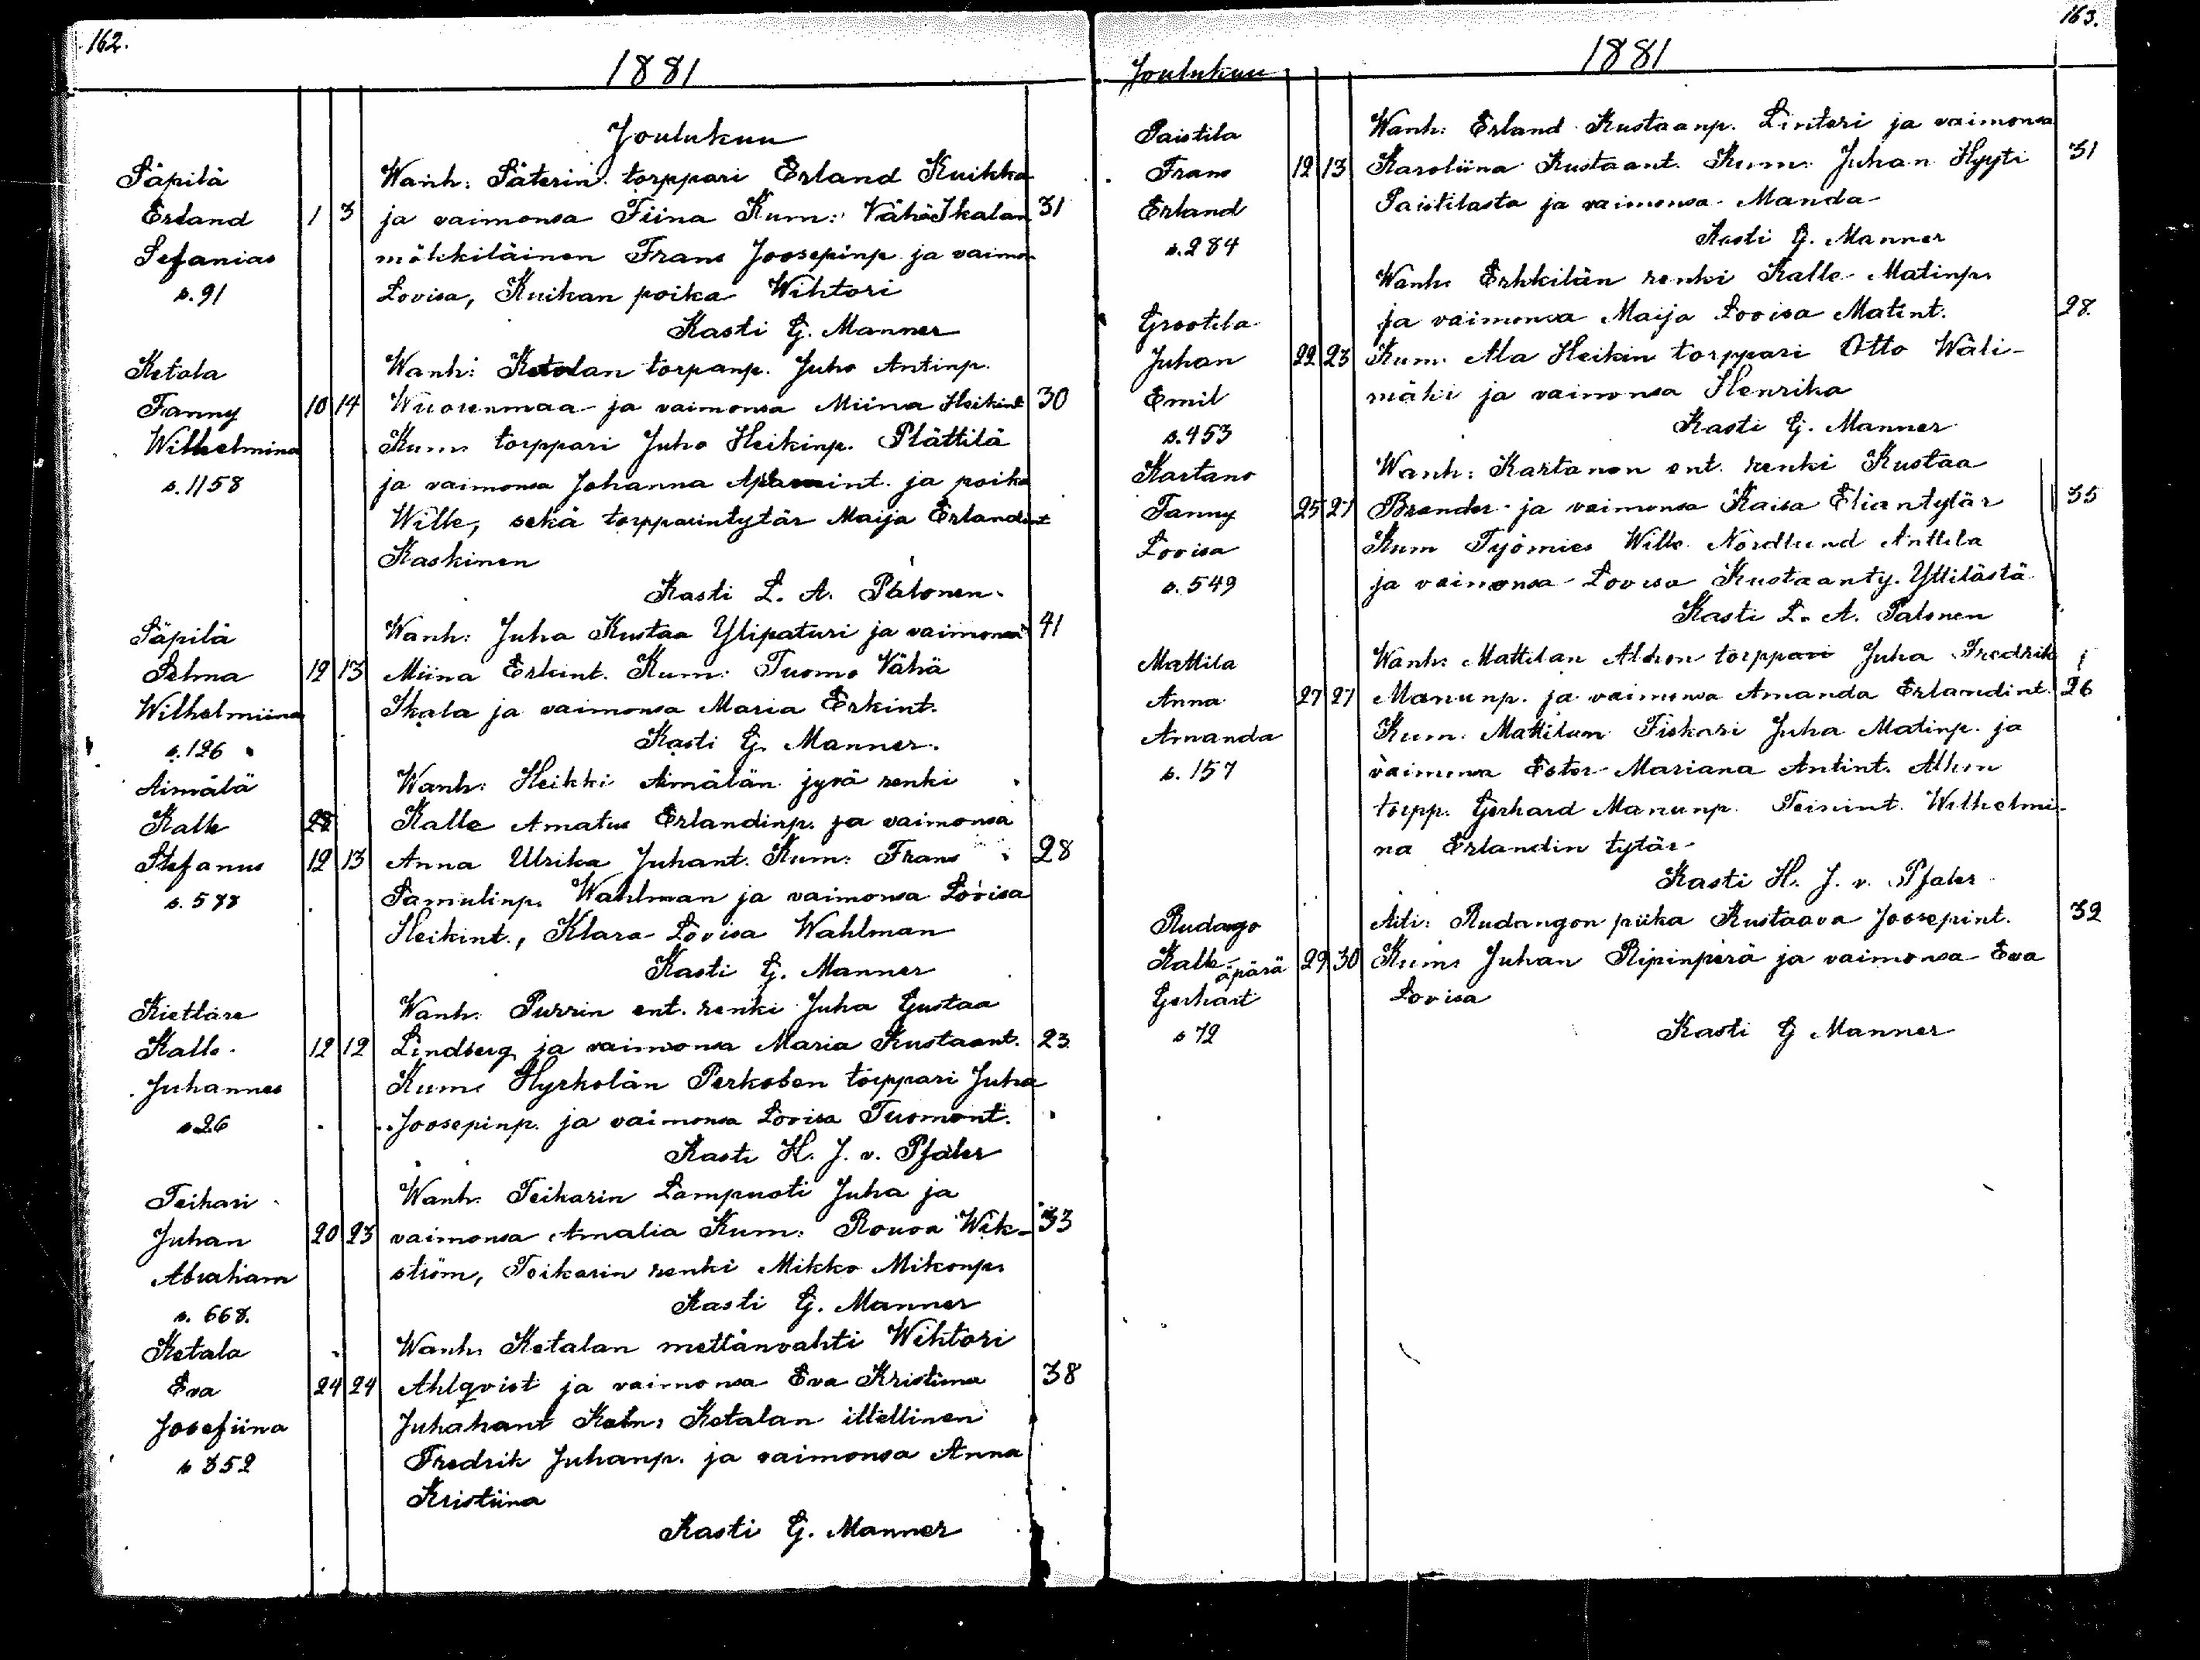 162.
1881
Joulukuu
Säpilä
Erland 1 3
Sefanias
s. 91
Wanh: Säterin torppari Erland Kuikka
ja vaimonsa Tiina Kum: Vähä Ikalan 31
mökkiläinen Frans Joosepinp ja vaimo
Lovisa, Kuikan poika Wihtori
Kasti G. Manner
Ketola
Fanny 10 14
Wilhelmina
s. 1158
Wanh: Ketolan torpanp. Juho Antinp.
Wuorenmaa ja vaimonsa Miina Heikint 30
Kum: torppari Juho Heikinp. Plättilä
ja vaimonsa Johanna ja poika
Wille, sekä torpparintytär Maija Erlandint
Kaskinen
Kasti L. A. Palonen.
Säpilä
Selma 12 13
Wilhelmiina
s. 126
Wanh: Juha Kustaa Ylipaturi ja vaimonsa 41
Miina Erkint. Kum: Tuomo Vähä
Ikala ja vaimonsa Maria Erkint.
Kasti G. Manner.
Aimälä
Kalle 28
Stefanus 12 13
s. 588
Wanh: Heikki Aimälän jyvä renki
Kalle Amatus Erlandinp. ja vaimonsa
Anna Ulrika Juhant. Kum: Frans 28
Samulinp. Wahlman ja vaimonsa Lovisa
Heikint., Klara Lovisa Wahlman
Kasti G. Manner
Kiettäre
Kalle 12 12
Juhannes
s 26
Wanh: Purrin ent. renki Juha Gustaa
Lindberg ja vaimonsa Maria Kustaant. 23
Kum: Hyrkölän Perkosen torppari Juha
Joosepinp. ja vaimonsa Lovisa Tuomont.
Kasti H. J. v. Pfaler
Teikari
Juhan 20 23
Abraham
s. 668.
Wanh: Teikarin Lampuoti Juha ja
vaimonsa Amalia Kum: Rouva Wik- 33
ström, Teikarin renki Mikko Mikonp.
Kasti G. Manner
Ketala
Eva 24 24
Josefiina
s 352
Wanh: Ketalan mettänvahti Wihtori
Ahlqvist ja vaimonsa Eva Kristiina 38
Juhahant Kum: Ketalan itellinen
Fredrik Juhanp. ja vaimonsa Anna
Kristiina
Kasti G. Manner
163.
Joulukuu
1881
Paistila
Frans 12 13
Erland
s. 284
Wanh: Erland Kustaanp. Linteri ja vaimonsa
Karoliina Kustaant. Kum: Juhan Hyyti 31
Paistilasta ja vaimonsa Manda
Kasti G. Manner
Grootila
Juhan 22 23
Emil
s. 453
Wanh: Erkkilän renki Kalle Matinp.
ja vaimonsa Maija Lovisa Matint. 28.
Kum. Ala Heikin torppari Otto Wäli-
mäki ja vaimonsa Henrika
Kasti G. Manner
Kartano
Fanny 25 27
Lovisa
s. 549
Wanh: Kartanon ent. renki Kustaa
Brander ja vaimonsa Kaisa Eliantytär 35
Kum Työmies Wille Nordlund Anttila
ja vaimonsa Lovisa Kustaanty. Yttilästä
Kasti L. A. Palonen
Mattila
Anna 27 27
Amanda
s. 157
Wanh: Mattilan Alhon torppari Juha Fredrik
Manunp. ja vaimonsa Amanda Erlandint. 26
Kum. Mattilan Fiskari Juha Matinp. ja
vaimonsa Ester Mariana Antint. Alhon
torpp. Gerhard Manunp. Teinint. Wilhelmi-
na Erlandin tytär
Kasti H. J. v. Pfaler
Rudango
Kalle äpärä 29 30
Gerhart
s 72
Äiti: Rudangon piika Kustaava Joosepint. 32
Kum: Juhan Ripinperä ja vaimonsa Eva
Lovisa
Kasti G Manner